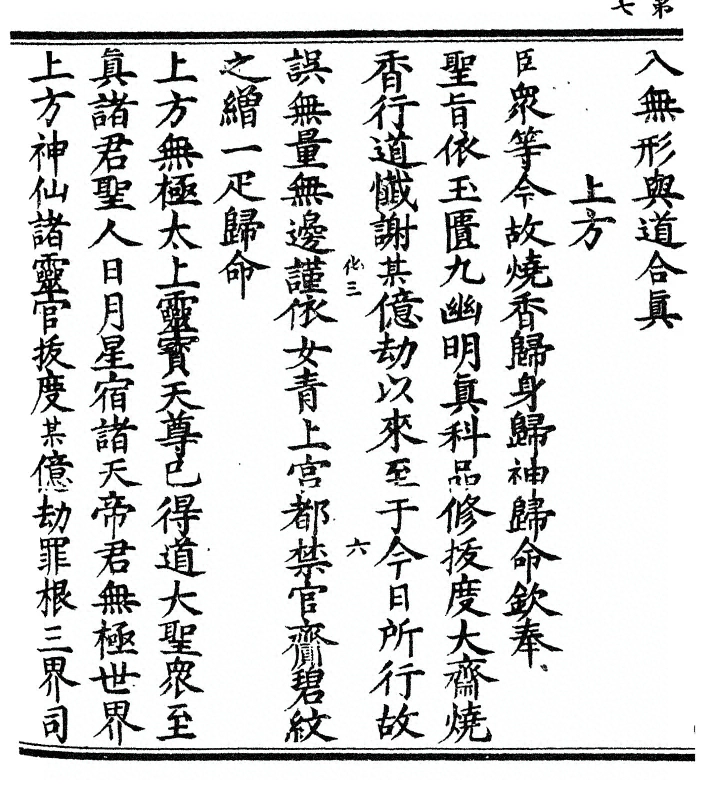 入無形與道合眞
上方
臣衆等今故燒香歸身歸神歸命欽奉
聖旨依玉匱九幽明眞科品修拔度大齋燒
香行道懺謝某億劫以來至于今日所行故
化三
六
誤無量無邊謹依女青上宮都禁官齎碧紋
之繒一疋歸命
上方無極太上靈寶天尊已得道大聖衆至
眞諸君聖人日月星宿諸天帝君無極世界
上方神仙諸靈官拔度某億劫罪根三界司